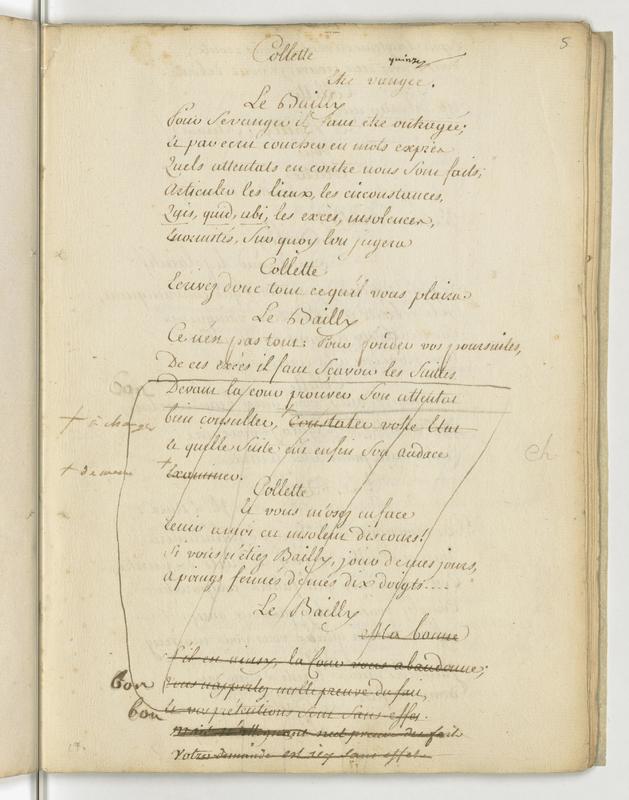 5
Collette
quinze
être vangée.
Le Bailly
Pour se vanger il faut etre outragée;
et par ecrit coucher en mots exprès
Quels attentats en contre nous sont faits;
articuler les lieux, les circonstances,
Quis, quid, ubi, les excès, insolences,
Enormités, sur quoy lon jugera
Collette
Ecrivez donc tout ce qu'il vous plaira.
Le Bailly
Ce n'est pas tout: Pour fonder vos poursuites,
De ces excés il faut scavoir les suites
Devant la cour prouver son attentat
+ à changer
bien consulter, constater votre Etat
et quelle suite eut enfin son audace
+ De meme
+ Examiner.
ch
Collette
Et vous m'osez en face
Tenir à moi cet insolent discours!
Si vous n'étiez Bailly, jour de mes jours,
a poings fermés de mes dix doigts....
Le Bailly
Ma bonne
S'il en est ainsy, la Cour vous abandonne;
bon
vous n'apportez nulle preuve du fait,
bon
et vos prétentions sont sans effet.
votre demande est icy sans effet